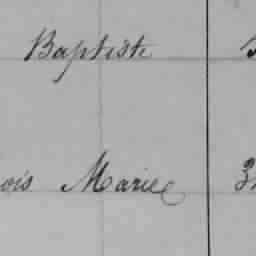 Baptiste
ois Marie